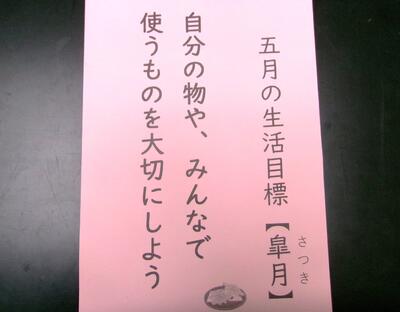 五月の生活目標【皐月】
さつき
自分の物や、みんなで
使うものを大切にしよう